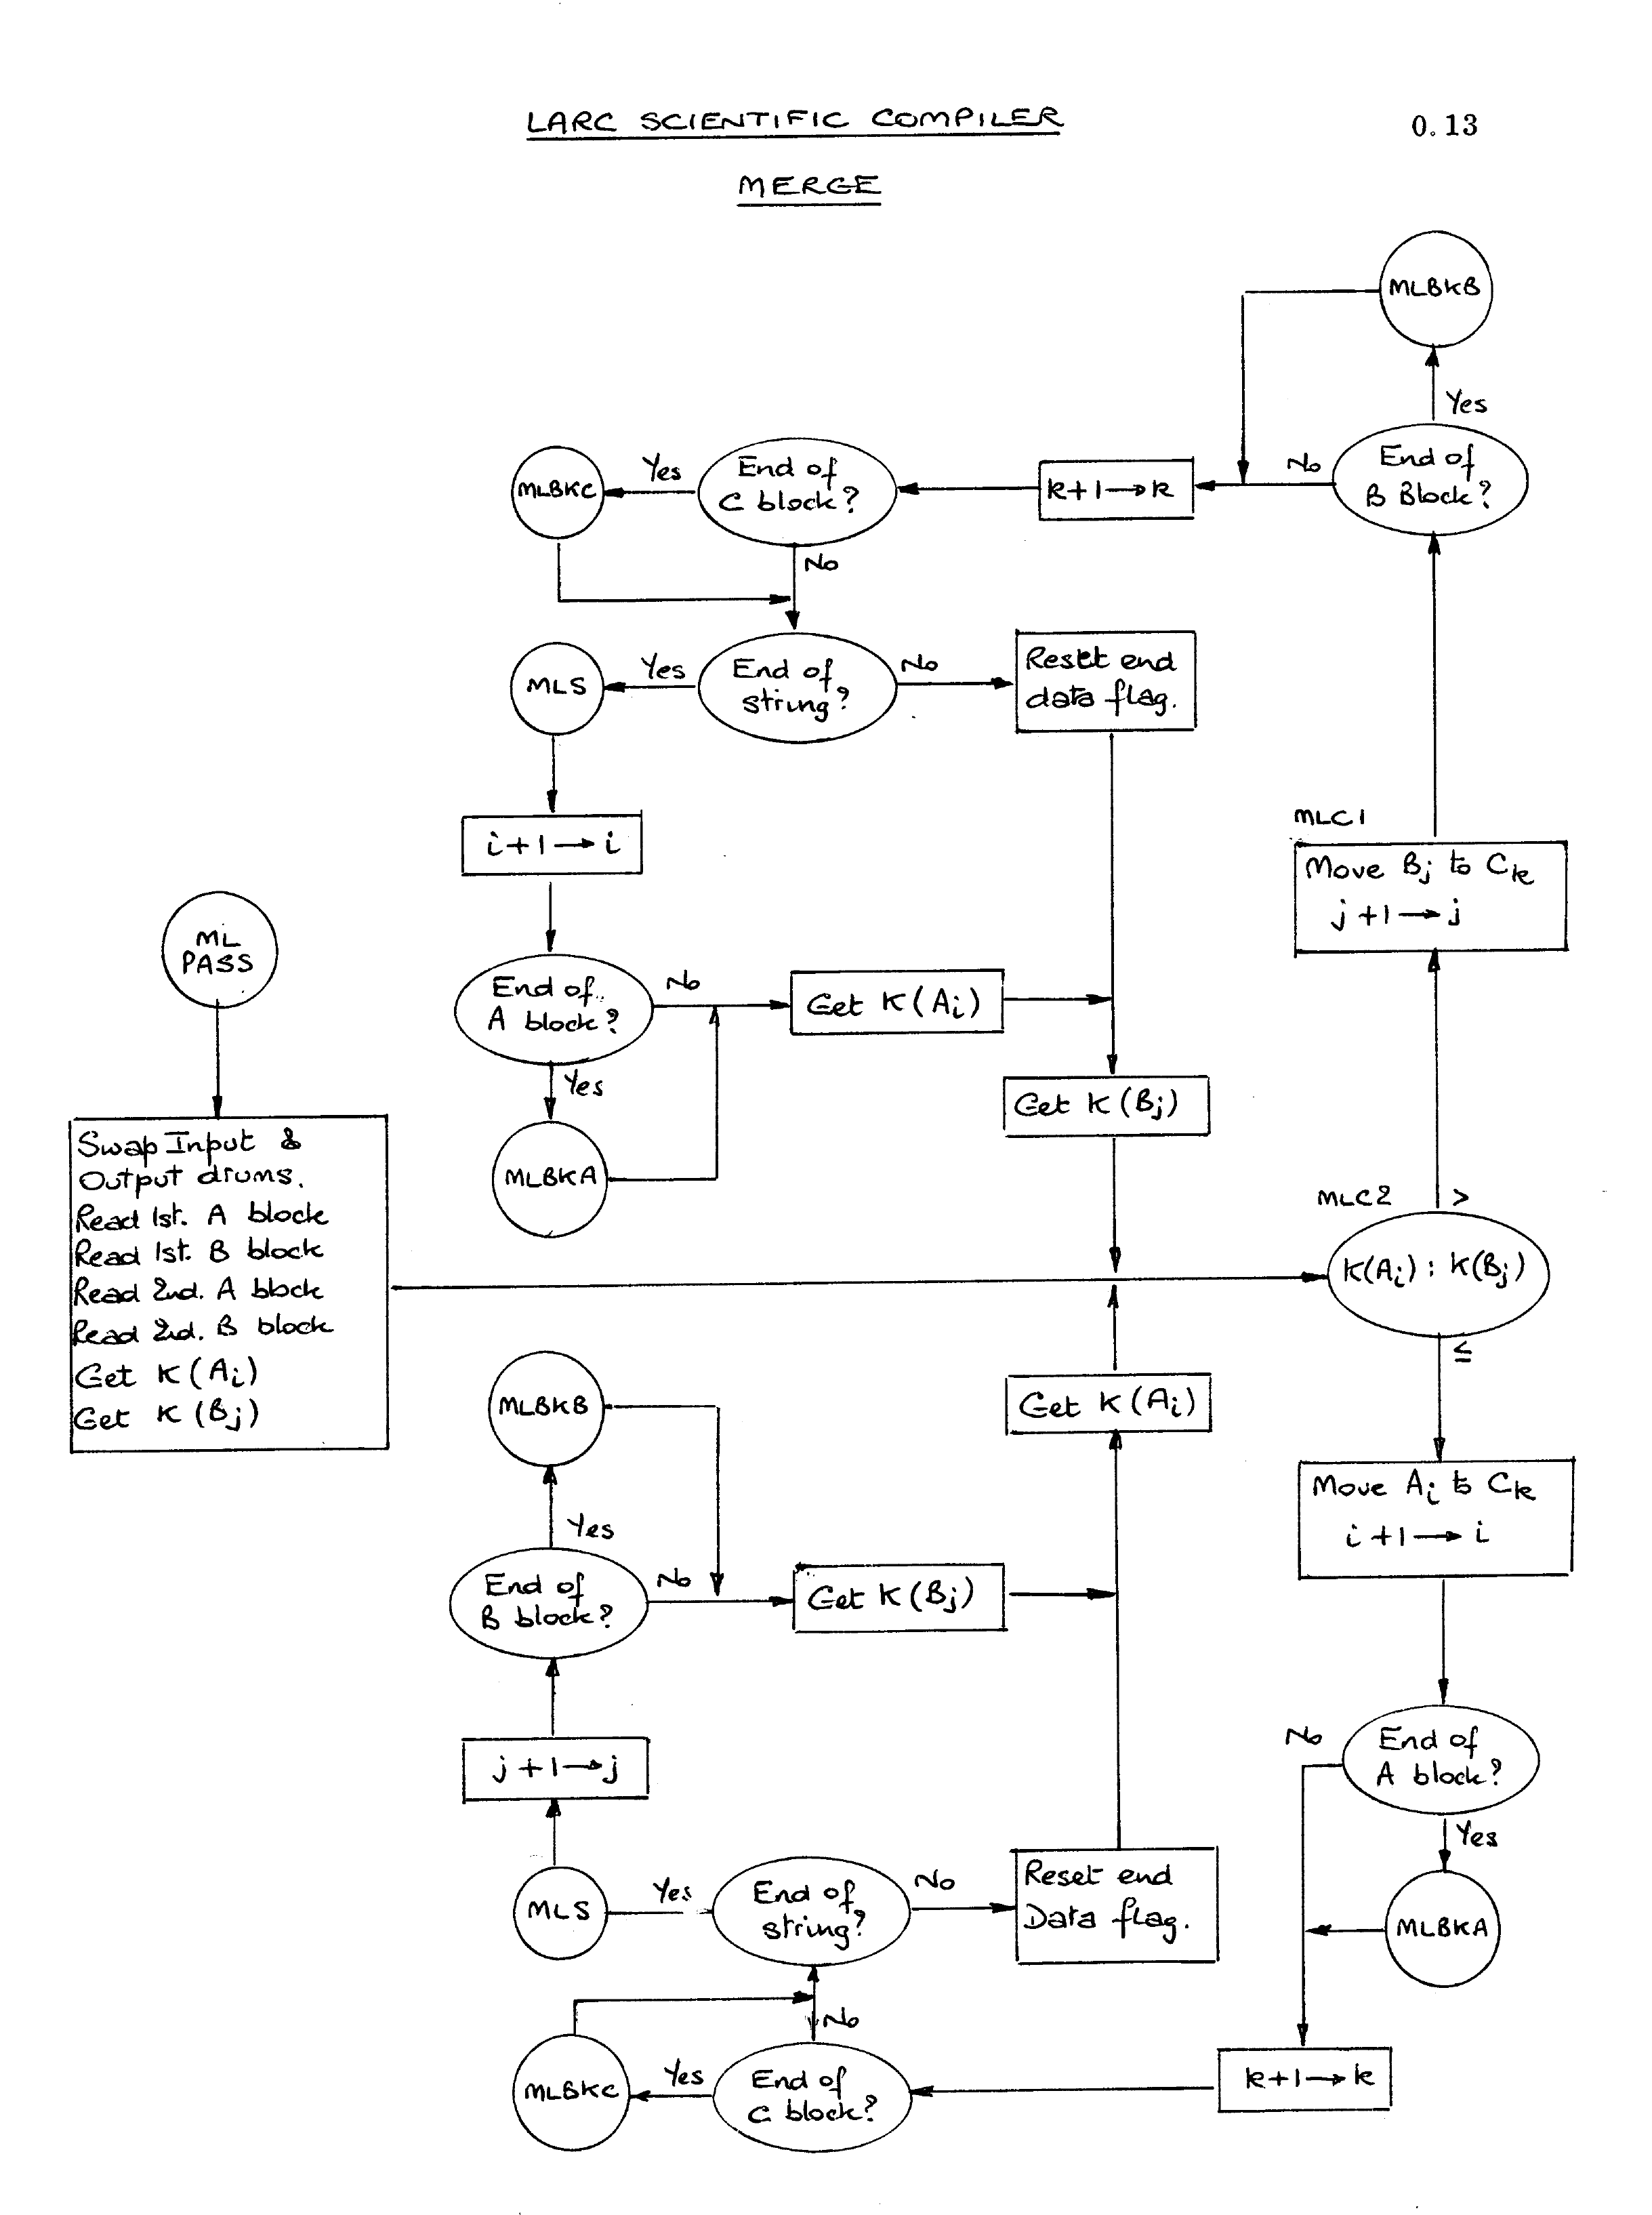 LARC SCIENTIFIC COMPILER
0.13
MERGE
MLBKB
Yes
End of
B Block?
No
k+1→k
End of
C block?
Yes
MLBKC
No
End of
string?
Yes
MLS
No
Reset end
data flag.
i+1→i
MLC1
Move Bj to Ck
j+1→j
ML
PASS
End of
A block?
No
Get K(Ai)
Yes
MLBKA
Get K(Bj)
Swap Input &
Output drums.
Read 1st. A block
Read 1st. B block
Read 2nd. A block
Read 2nd. B block
Get K(Ai)
Get K(Bj)
MLC2
>
K(Ai) : K(Bj)
≤
MLBKB
Get K(Ai)
Yes
Move Ai to Ck
i+1→i
End of
B block?
No
Get K(Bj)
j+1→j
No
End of
A block?
Yes
MLBKA
MLS
Yes
End of
string?
No
Reset end
Data flag.
No
MLBKC
Yes
End of
C block?
k+1→k